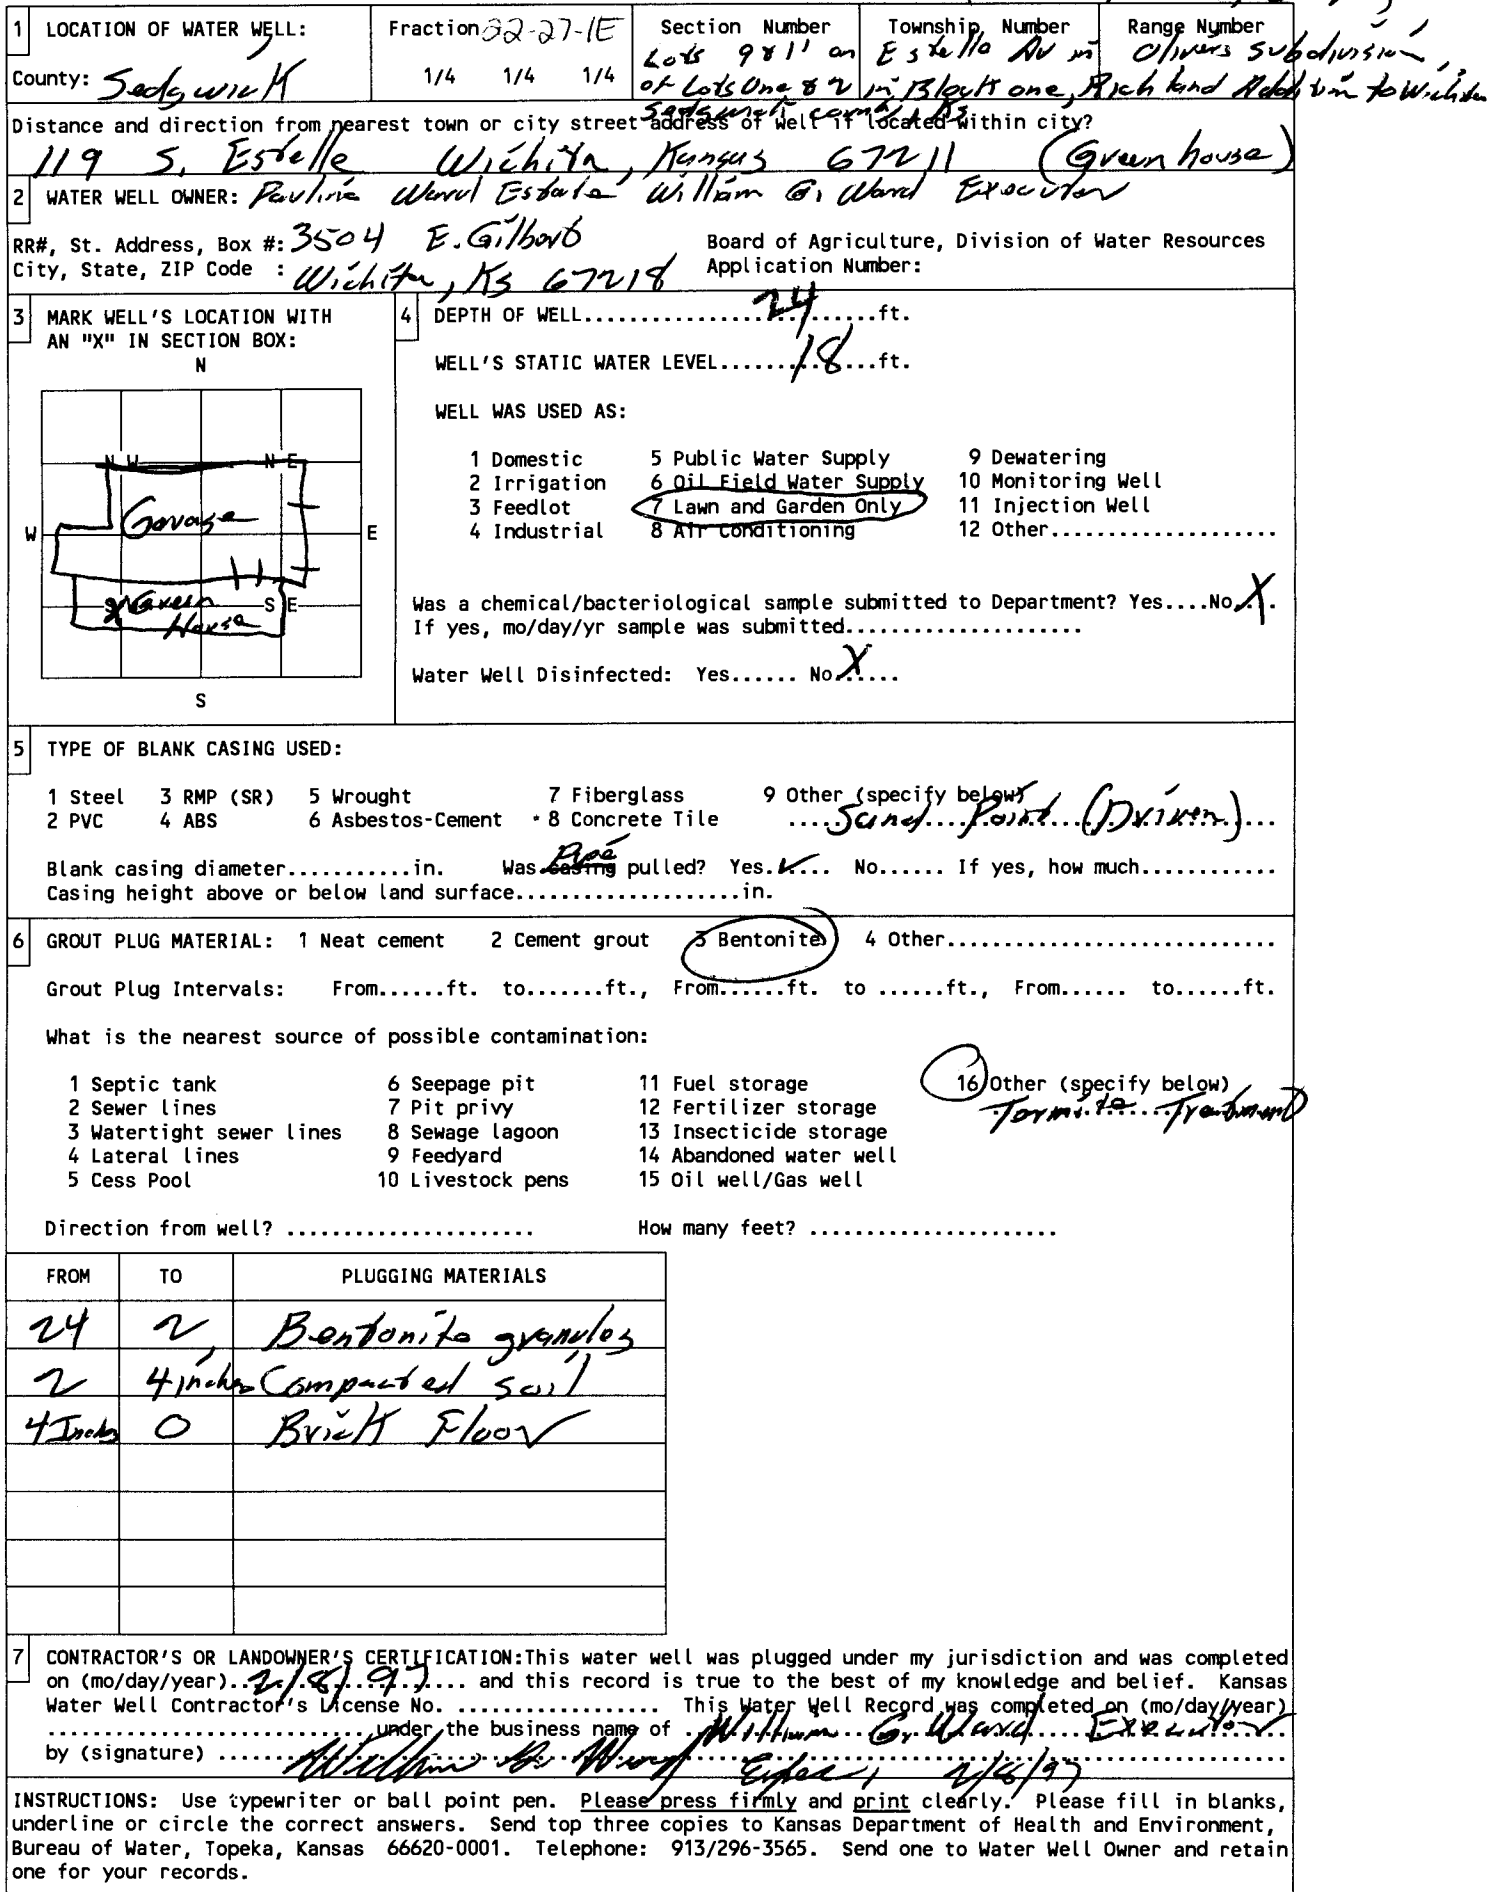 1 LOCATION OF WATER WELL: Fraction 22-27-1E Section Number Township Number Range Number
Lots 9 & 11 on Estelle Av in Olivers Subdivision,
County: Sedgwick 1/4 1/4 1/4 of Lots One & 2 in Block one, Richland Addition to Wichita
Sedgwick county, Ks
Distance and direction from nearest town or city street address of well if located within city?
119 S. Estelle Wichita, Kansas 67211 (Green house)
2 WATER WELL OWNER: Pauline Ward Estate William G. Ward Executor
RR#, St. Address, Box #: 3504 E. Gilbert Board of Agriculture, Division of Water Resources
City, State, ZIP Code : Wichita, Ks 67218 Application Number:
3 MARK WELL'S LOCATION WITH AN "X" IN SECTION BOX:
N
NW NE
Garage
W E
X Green House SE
S
4 DEPTH OF WELL....................24......ft.
WELL'S STATIC WATER LEVEL.......18...ft.
WELL WAS USED AS:
1 Domestic 5 Public Water Supply 9 Dewatering
2 Irrigation 6 Oil Field Water Supply 10 Monitoring Well
3 Feedlot 7 Lawn and Garden Only 11 Injection Well
4 Industrial 8 Air Conditioning 12 Other....................
Was a chemical/bacteriological sample submitted to Department? Yes....No.X.
If yes, mo/day/yr sample was submitted.....................
Water Well Disinfected: Yes...... No X....
5 TYPE OF BLANK CASING USED:
1 Steel 3 RMP (SR) 5 Wrought 7 Fiberglass 9 Other (specify below)
2 PVC 4 ABS 6 Asbestos-Cement 8 Concrete Tile ....Sand Point (Driven)...
Blank casing diameter...........in. Was casing Pipe pulled? Yes.✓... No...... If yes, how much............
Casing height above or below land surface....................in.
6 GROUT PLUG MATERIAL: 1 Neat cement 2 Cement grout 3 Bentonite 4 Other.............................
Grout Plug Intervals: From......ft. to.......ft., From......ft. to ......ft., From...... to......ft.
What is the nearest source of possible contamination:
1 Septic tank 6 Seepage pit 11 Fuel storage 16 Other (specify below)
2 Sewer lines 7 Pit privy 12 Fertilizer storage Termite Treatment
3 Watertight sewer lines 8 Sewage lagoon 13 Insecticide storage
4 Lateral lines 9 Feedyard 14 Abandoned water well
5 Cess Pool 10 Livestock pens 15 Oil well/Gas well
Direction from well? ...................... How many feet? ......................
FROM TO PLUGGING MATERIALS
24 2 Bentonite granules
2 4 inches Compacted soil
4 Inches 0 Brick Floor
7 CONTRACTOR'S OR LANDOWNER'S CERTIFICATION:This water well was plugged under my jurisdiction and was completed
on (mo/day/year)..2/8/97.... and this record is true to the best of my knowledge and belief. Kansas
Water Well Contractor's License No. .................. This Water Well Record was completed on (mo/day/year)
............................ under the business name of ..William G. Ward Executor
by (signature) ......William G. Ward 2/8/97
INSTRUCTIONS: Use typewriter or ball point pen. Please press firmly and print clearly. Please fill in blanks,
underline or circle the correct answers. Send top three copies to Kansas Department of Health and Environment,
Bureau of Water, Topeka, Kansas 66620-0001. Telephone: 913/296-3565. Send one to Water Well Owner and retain
one for your records.